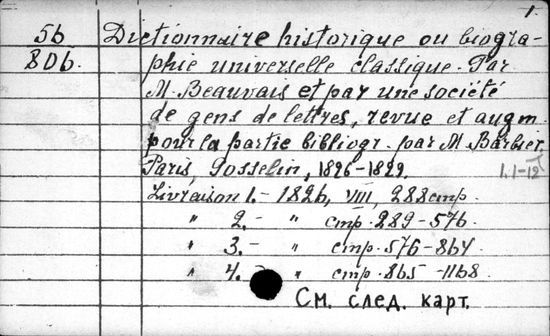 1.
56 Dictionnaire historique ou biogra-
80б. phie universelle classique. Par
M. Beauvais et par une société
de gens de lettres, revue et augm.
pour la partie bibliogr. par M. Barbier.
Paris, Gosselin, 1826-1829.
1.1-12
Livraison 1.- 1826, VIII, 288 стр.
" 2.- " стр. 289-576.
" 3.- " стр. 576-864.
" 4.- " стр. 865-1168.
См. след. карт.